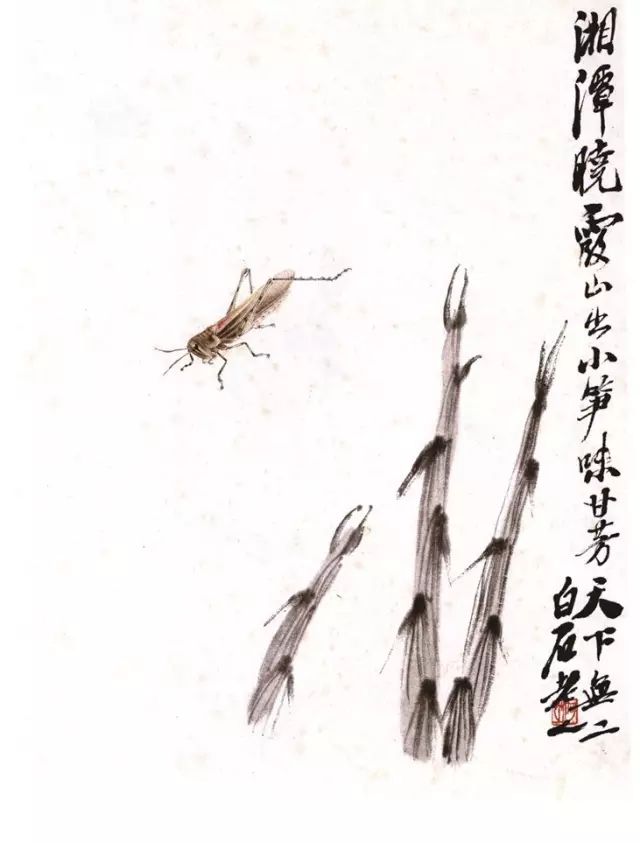 湘潭曉霞山出小筍味甘芳天下無二
白石老人